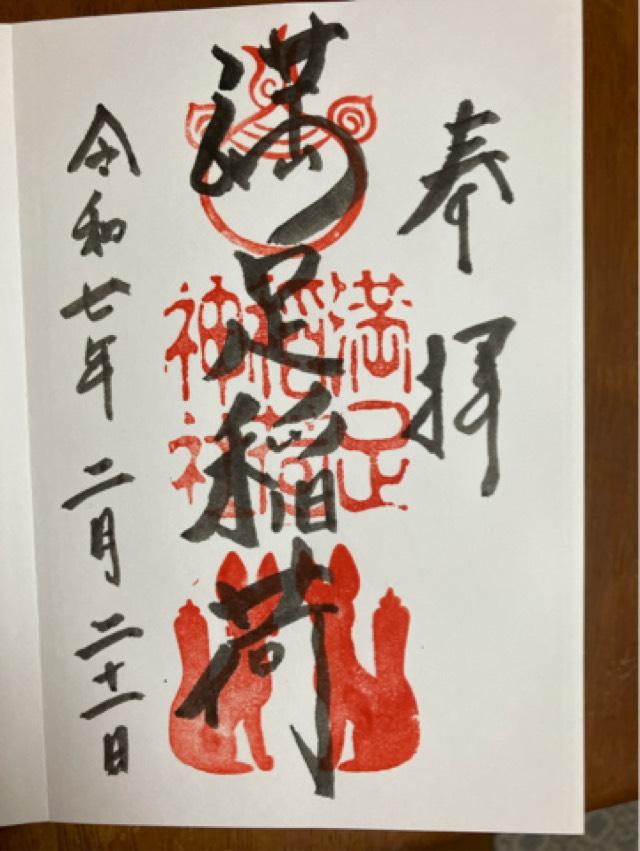 奉拝
満足稲荷
満足
稲荷
神社
令和七年二月二十一日